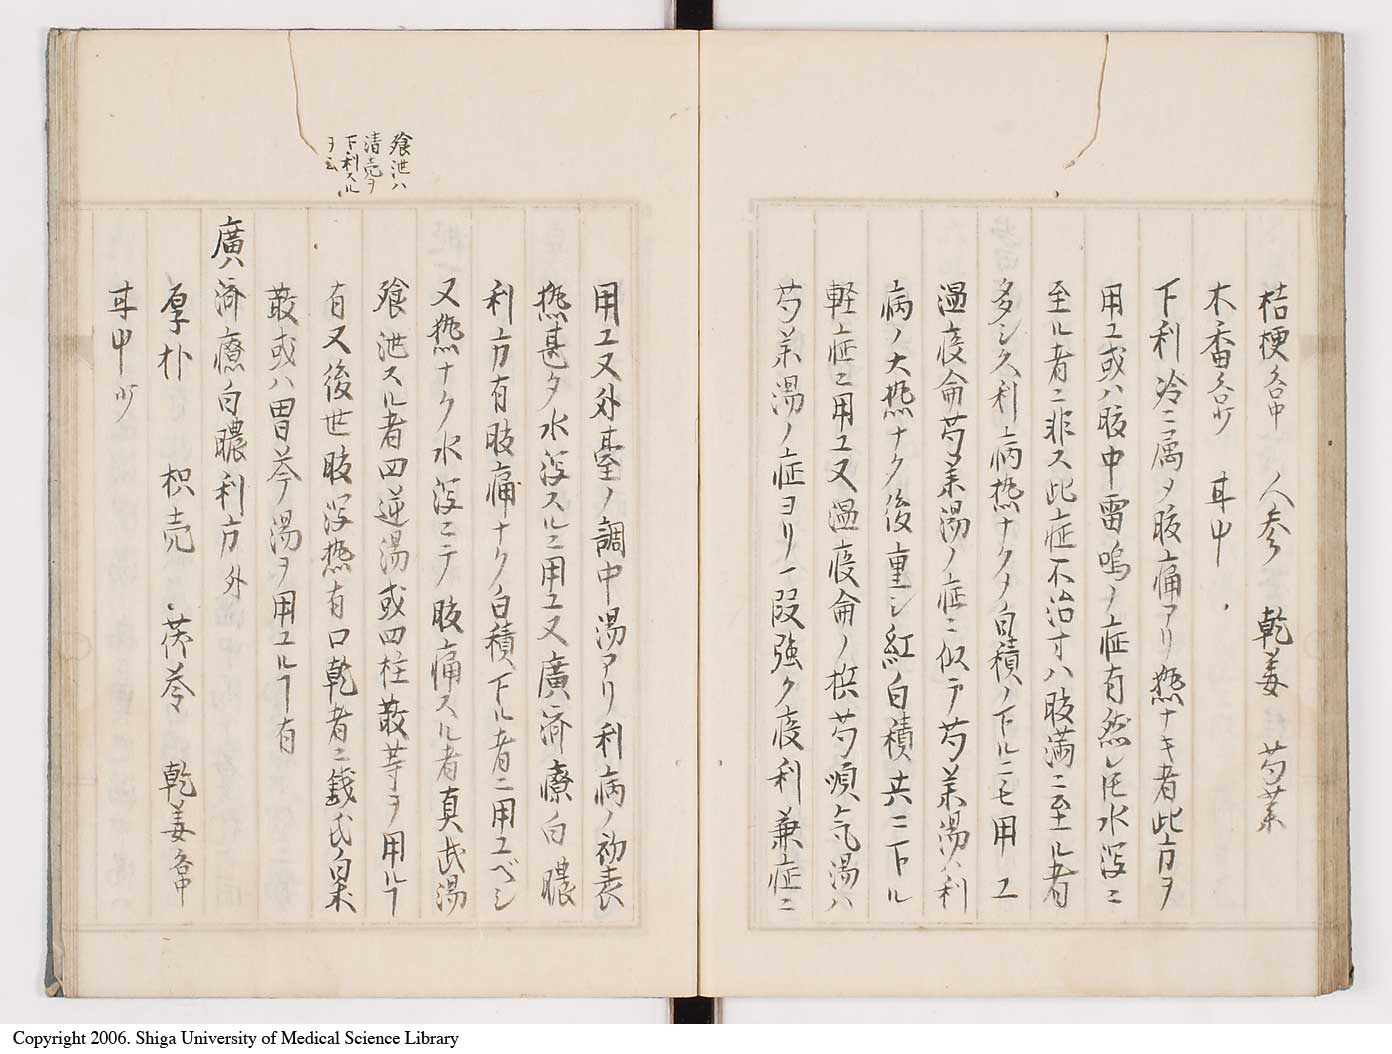 桔梗各中 人参 乾姜 芍薬
木香各少 甘中
下利冷ニ属メ腹痛アリ熱ナキ者此方ヲ
用ユ或ハ腹中雷鳴ノ症有然レ𪜈水瀉ニ
至ル者ニ非ス此症不治寸ハ腹満ニ至ル者
多シ久利病熱ナクメ白積ノ下ルニモ用ユ
温疫侖芍薬湯ノ症ニ似テ芍薬湯ハ利
病ノ大熱ナク後重シ紅白積共ニ下ル
軽症ニ用ユ又温疫侖ノ梹芍順気湯ハ
芍薬湯ノ症ヨリ一段強ク疫利兼症ニ
用ユ又外臺ノ調中湯アリ利病ノ初表
熱甚タ水瀉スルニ用ユ又廣済療白膿
利方有腹痛ナク白積下ル者ニ用ユベシ
又熱ナク水瀉ニテ腹痛スル者真武湯
飱泄スル者四逆湯或四柱散等ヲ用ルヿ
有又後世腹瀉熱有口乾者ニ錢氏白朮
散或ハ胃苓湯ヲ用ユルヿ有
飱泄ハ
清売ヲ
下利スル
ヲ云
廣済療白膿利方外
厚朴 枳売 茯苓 乾姜各中
甘中少